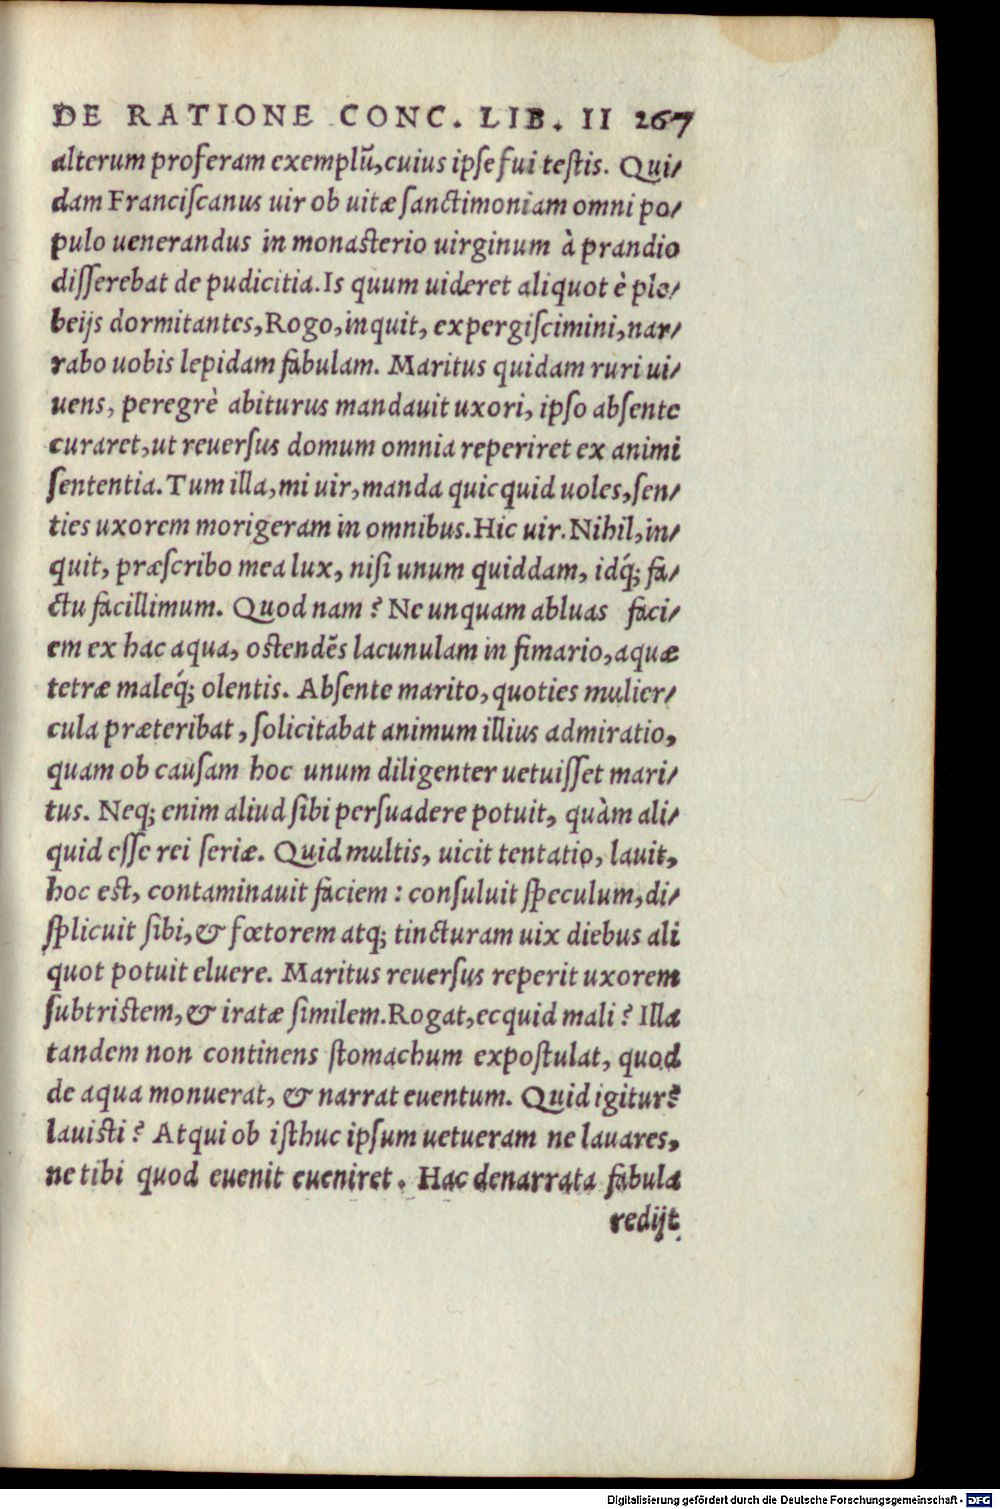 DE RATIONE CONC. LIB. II 267
alterum proferam exemplũ, cuius ipse fui testis. Qui/
dam Franciscanus uir ob uitæ sanctimoniam omni po/
pulo uenerandus in monasterio uirginum à prandio
disserebat de pudicitia. Is quum uideret aliquot è ple/
beijs dormitantes, Rogo, inquit, expergiscimini, nar/
rabo uobis lepidam fabulam. Maritus quidam ruri ui/
uens, peregrè abiturus mandauit uxori, ipso absente
curaret, ut reuersus domum omnia reperiret ex animi
sententia. Tum illa, mi uir, manda quicquid uoles, sen/
ties uxorem morigeram in omnibus. Hic uir. Nihil, in/
quit, præscribo mea lux, nisi unum quiddam, idq́; fa/
ctu facillimum. Quod nam? Ne unquam abluas faci/
em ex hac aqua, ostendẽs lacunulam in fimario, aquæ
tetræ maleq́; olentis. Absente marito, quoties mulier/
cula præteribat, solicitabat animum illius admiratio,
quam ob causam hoc unum diligenter uetuisset mari/
tus. Neq; enim aliud sibi persuadere potuit, quàm ali/
quid esse rei seriæ. Quid multis, uicit tentatio, lauit,
hoc est, contaminauit faciem: consuluit speculum, di/
splicuit sibi, & fœtorem atq; tincturam uix diebus ali
quot potuit eluere. Maritus reuersus reperit uxorem
subtristem, & iratæ similem. Rogat, ecquid mali? Illa
tandem non continens stomachum expostulat, quod
de aqua monuerat, & narrat euentum. Quid igitur?
lauisti? Atqui ob isthuc ipsum uetueram ne lauares,
ne tibi quod euenit eueniret. Hac denarrata fabula
redijt
Digitalisierung gefördert durch die Deutsche Forschungsgemeinschaft - DFG